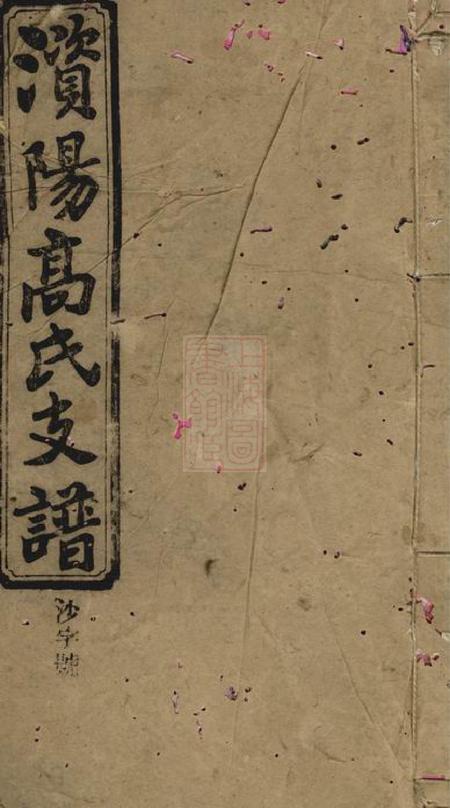 澬陽髙氏支譜
沙字號
上海圖
書館藏